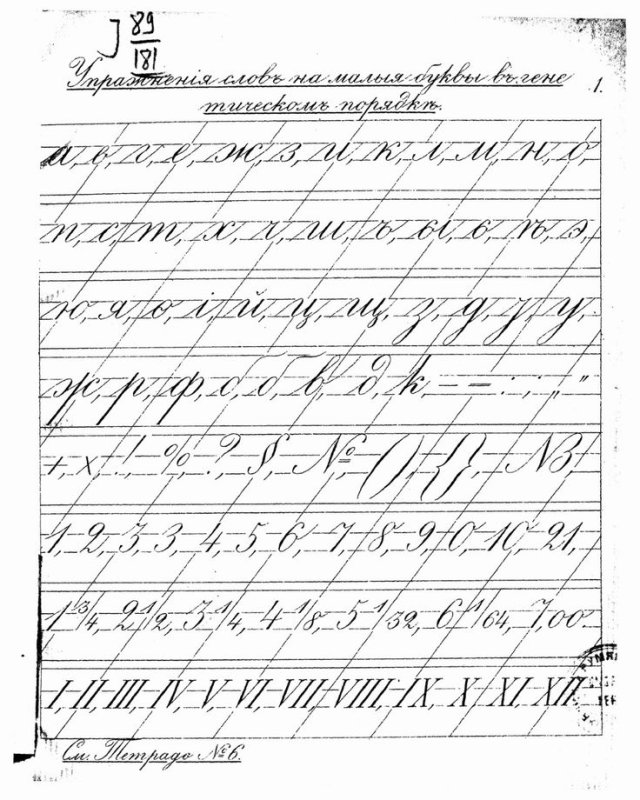 89
181
Упражненія словъ на малыя буквы въ гене
тическомъ порядкѣ.
1.
а, в, г, е, ж, з, и, к, л, м, н, о,
п, с, т, х, ч, ш, ъ, ы, ь, ѣ, э,
ю, я, ѳ, і, й, ц, щ, з, д, з, у,
ж, р, ф, б, б, в, д, k, – = : ; „ “
+, x, !, %, ?, §, №, (), {}, NB,
1, 2, 3, 3, 4, 5, 6, 7, 8, 9, 0, 10, 21,
1 3/4, 2 1/2, 3 1/4, 4 1/8, 5 1/32, 6 1/64, 7,00
I, II, III, IV, V, VI, VII, VIII, IX, X, XI, XII
См. Тетрадь №6.